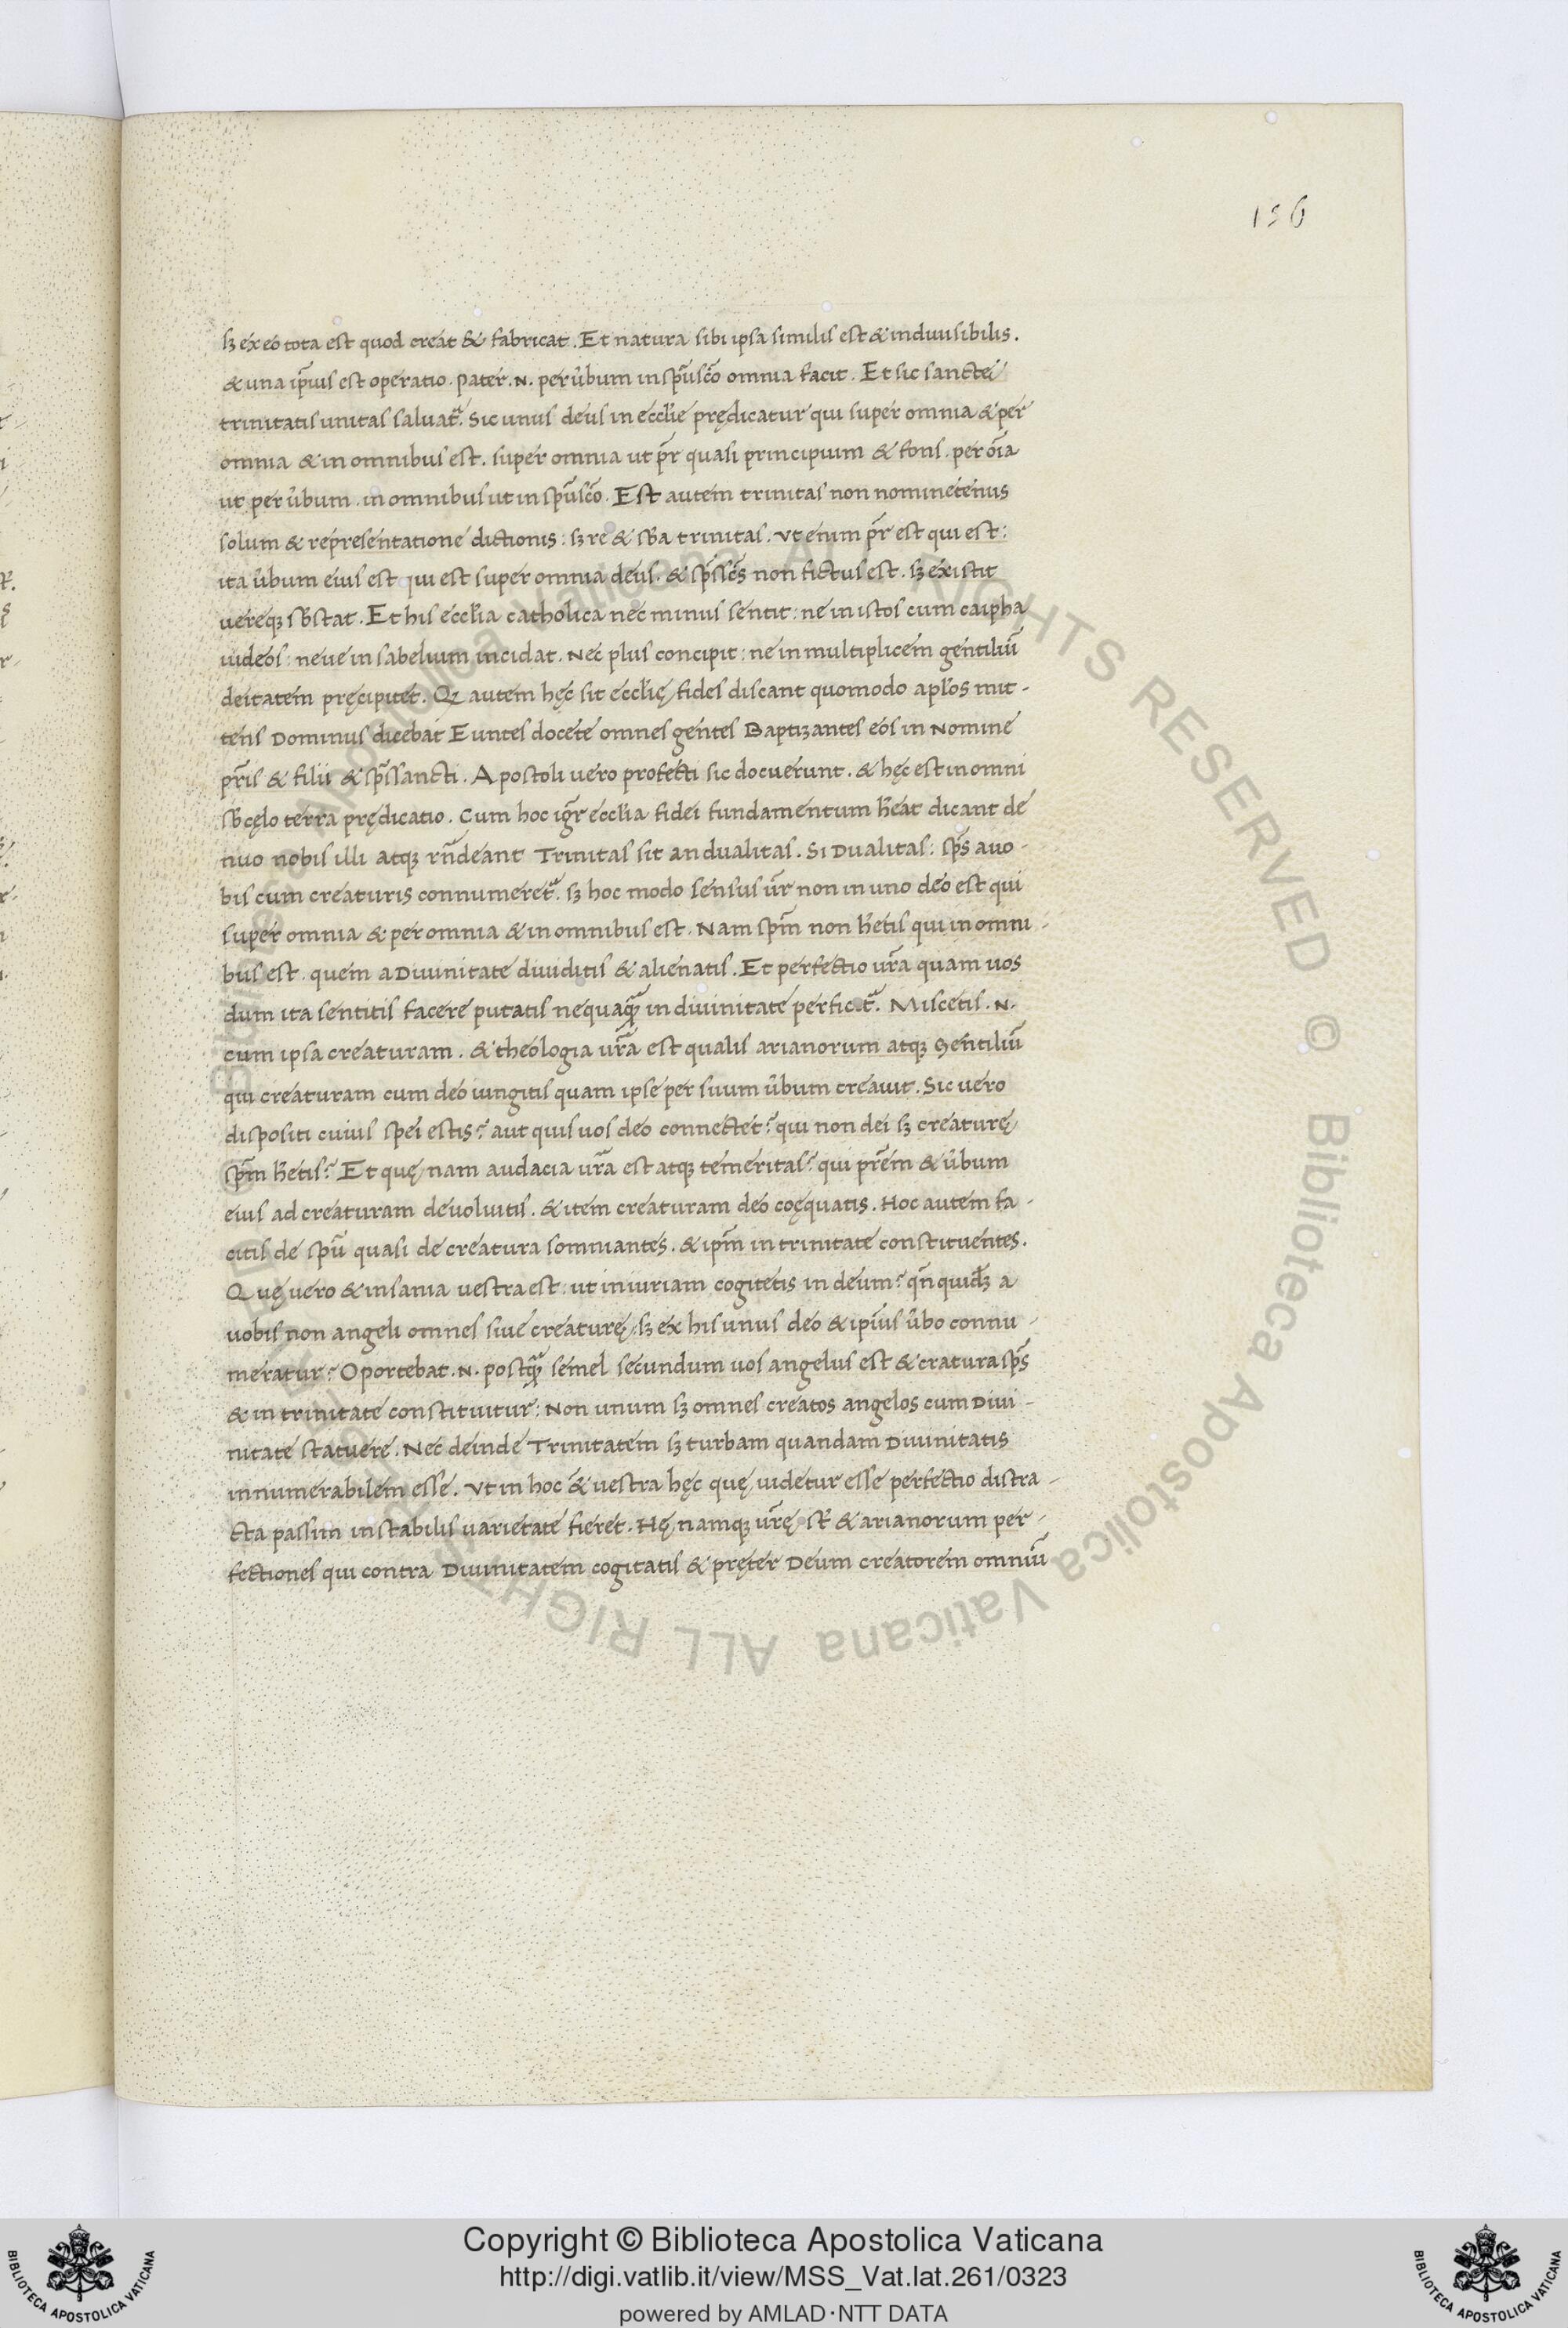 156
sꝫ ex eo tota est quod creat & fabricat. Et natura sibi ipsa similis est & indiuisibilis.
& una ip̄ius est operatio. Pater .N. per u̅bum in sp̄uscō omnia facit. Et sic sancte
trinitatis unitas saluat᷑. Sic unus deus in eccłie prędicatur qui super omnia & per
omnia & in omnibus est. super omnia ut pr̄ quasi principium & fons. per oīa
ut per u̅bum. in omnibus ut in sp̄uscō. Est autem trinitas non nominetenus
solum & representatione dictionis: sꝫ re & sƀa trinitas. Vt enim pr̄ est qui est:
ita u̅bum eius est qui est super omnia deus. & sp̄sscs̄ non fictus est. sꝫ existit
uereqꝫ sƀstat. Et his eccłia catholica nec minus sentit: ne in istos cum caipha
iudeos: neue in sabelium incidat. Nec plus concipit: ne in multiplicem gentiliū
deitatem pręcipitet. Qꝫ autem hęc sit eccłię fides discant quomodo apłos mit-
tens Dominus dicebat Euntes docete omnes gentes Baptizantes eos in Nomine
pr̄is & filii & sp̄ssancti. Apostoli uero profecti sic docuerunt. & hęc est in omni
sƀ cęlo terra prędicatio. Cum hoc igr̄ eccłia fidei fundamentum h̄eat dicant de
nuo nobis illi atqꝫ rn̄deant Trinitas sit an dualitas. Si Dualitas: sp̄s a uo-
bis cum creaturis connumeret᷑. sꝫ hoc modo sensus ur̄ non in uno deo est qui
super omnia & per omnia & in omnibus est. Nam sp̄m non h̄etis qui in omni-
bus est. quem a Diuinitate diuiditis & alienatis. Et perfectio ur̄a quam uos
dum ita sentitis facere putatis nequaꝗ̄ in diuinitate perficit᷑. Miscetis .N.
cum ipsa creaturam. & theologia ur̄a est qualis arianorum atqꝫ Gentiliū
qui creaturam cum deo iungitis quam ipse per suum u̅bum creauit. Sic uero
dispositi cuius spei estis? aut quis uos deo connectet? qui non dei sꝫ creaturę
sp̄m h̄etis? Et quę nam audacia ur̄a est atqꝫ temeritas? qui pr̄em & u̅bum
eius ad creaturam deuoluitis. & item creaturam deo coęquatis. Hoc autem fa-
citis de sp̄u quasi de creatura somniantes. & ip̄m in trinitate constituentes.
Quę uero & insania uestra est: ut iniuriam cogitetis in deum? qn̄ quidꝫ a
uobis non angeli omnes siue creaturę, sꝫ ex his unus deo & ip̄ius u̅bo connu-
meratur? Oportebat .N. postꝗ̄ semel secundum uos angelus est & cratura sp̄s
& in trinitate constituitur: Non unum sꝫ omnes creatos angelos cum Diui-
nitate statuere. Nec deinde Trinitatem sꝫ turbam quandam Diuinitatis
innumerabilem esse. Vt in hoc & uestra hęc quę uidetur esse perfectio distra-
cta passim instabilis uarietate fieret. Hę namqꝫ ur̄ę st̄ & arianorum per-
fectiones qui contra Diuinitatem cogitatis & pręter Deum creatorem omniū
Copyright © Biblioteca Apostolica Vaticana
http://digi.vatlib.it/view/MSS_Vat.lat.261/0323
powered by AMLAD·NTT DATA